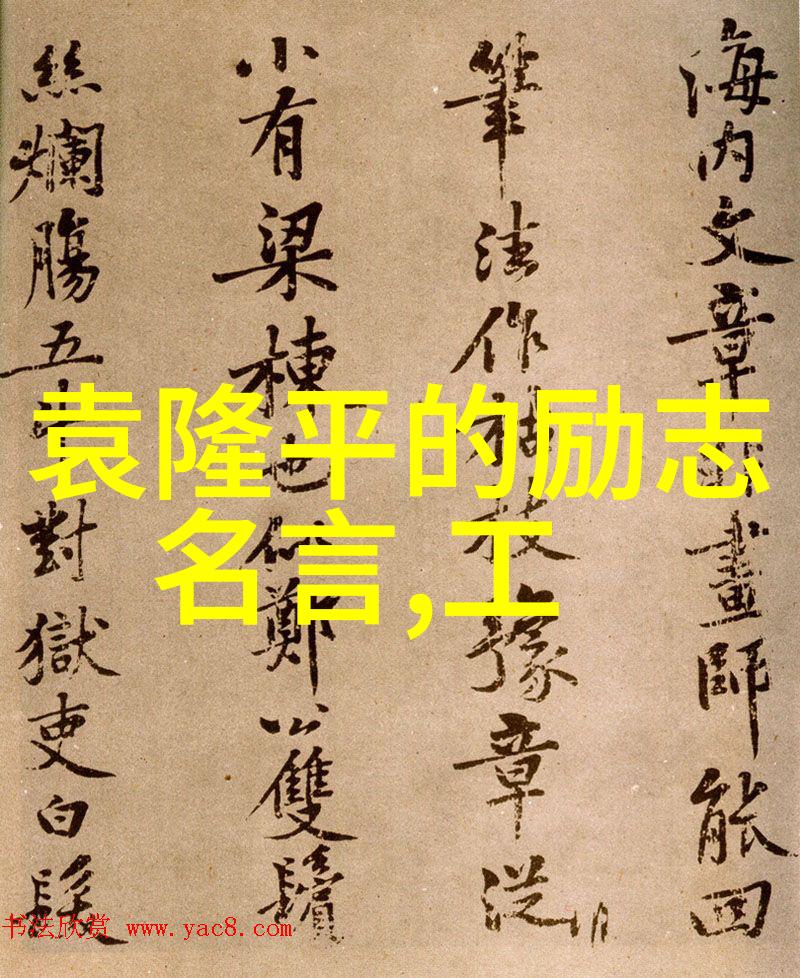 海内文章非畫師能回
筆法作枯枝豫章從
小有梁棟也似鄭公雙鬢
絲爛腸五斗對獄吏白髮
袁隆平的励志
名言,工
书法欣赏 www.yac8.com